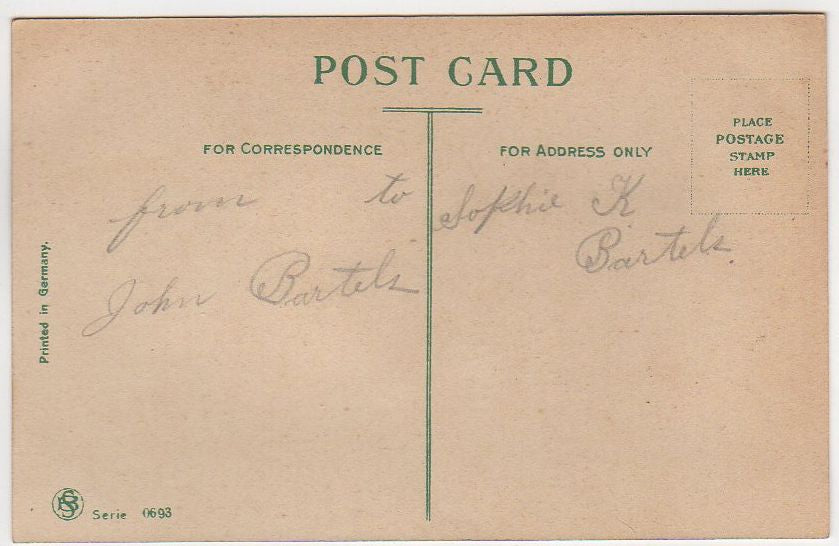 POST CARD
FOR CORRESPONDENCE
FOR ADDRESS ONLY
PLACE
POSTAGE
STAMP
HERE
from to
John Bartels
Sophie K
Bartels.
Printed in Germany.
Serie 0693